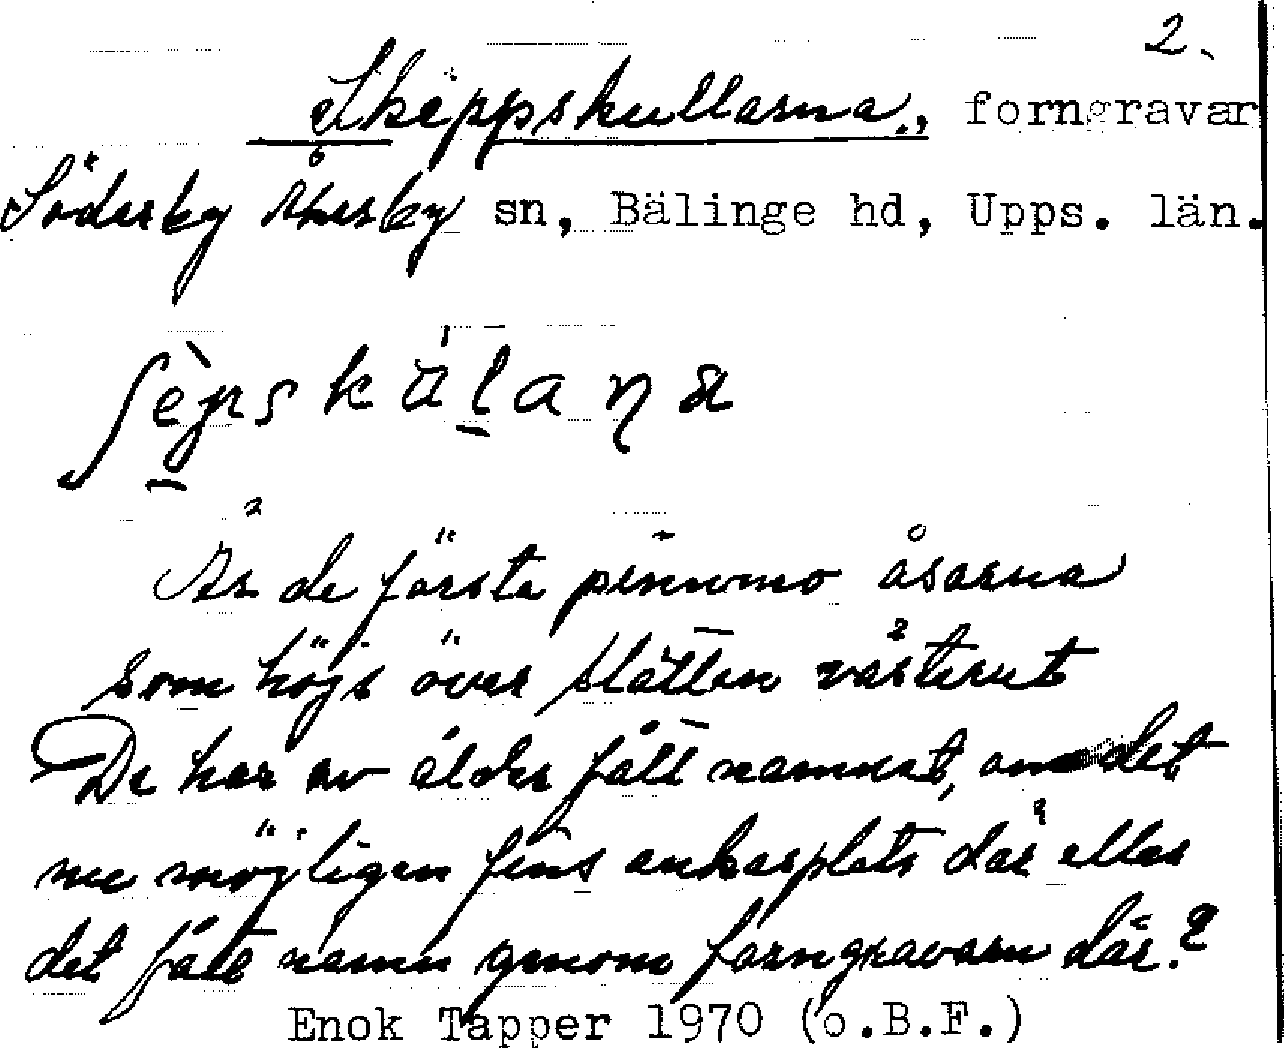 2.
Skeppskullarna, forngravar
Söderby Åkerby sn, Bälinge hd, Upps. län.
Är de första åsarna
som höjs över slätten västerut
De har av ålder fått namnet, om det
nu möjligen fins ankarplats där eller
det fått namn genom forngravarn där?
Enok Tapper 1970 (o.B.F.)